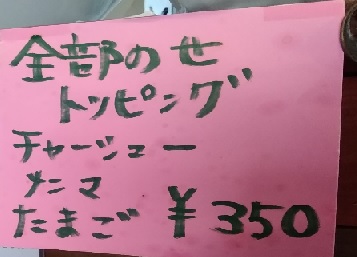 全部のせ
トッピング
チャーシュー
メニマ
たまご ¥350